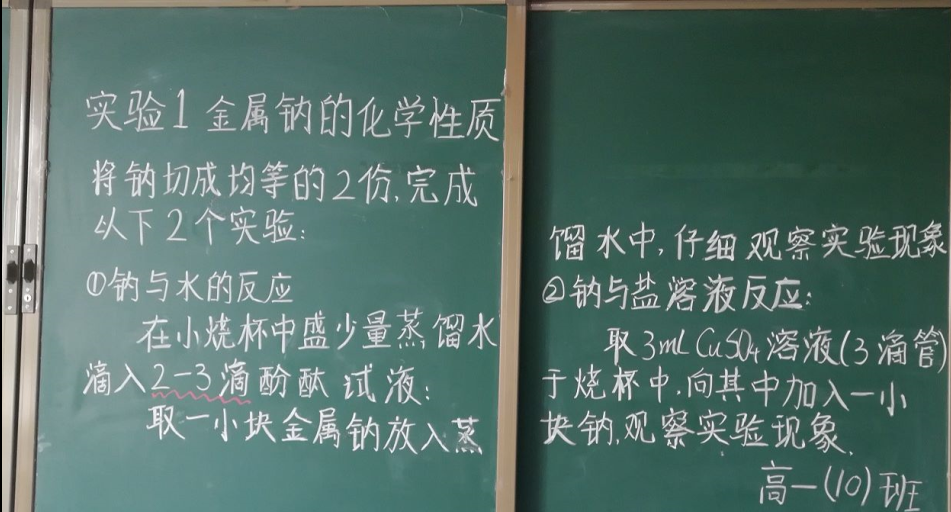 实验1 金属钠的化学性质
将钠切成均等的2份,完成
以下2个实验:
①钠与水的反应
在小烧杯中盛少量蒸馏水
滴入2-3滴酚酞试液;
取一小块金属钠放入蒸
馏水中,仔细观察实验现象
②钠与盐溶液反应:
取3ml CuSO4溶液(3滴管)
于烧杯中,向其中加入一小
块钠,观察实验现象.
高一(10)班